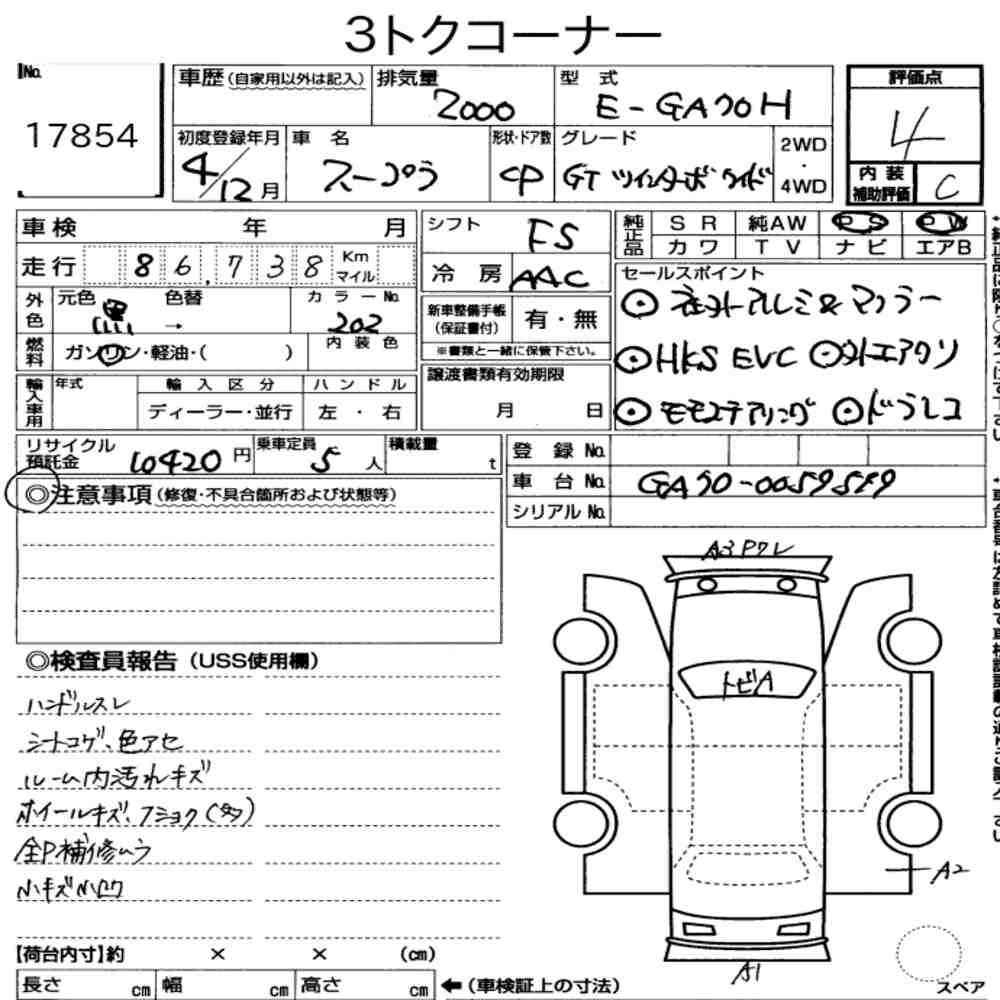 3トクコーナー
No.
17854
車歴（自家用以外は記入）
排気量
2000
型式
E-GA70H
評価点
4
内装
補助評価
C
初度登録年月
4/12月
車名
スープラ
形状・ドア数
CP
グレード
GT ツインターボ ワイド
2WD
・
4WD
車検 年 月
走行 86,738 Km マイル
外色
元色 黒 色替 →
カラーNo.
202
燃料
ガソリン・軽油・( )
内装色
輸入車用
年式
輸入区分
ディーラー・並行
ハンドル
左・右
シフト
F5
冷房
AAC
新車整備手帳
（保証書付）
有・無
※書類と一緒に保管下さい。
譲渡書類有効期限
月 日
純正品
SR 純AW PS PW
カワ TV ナビ エアB
セールスポイント
⊙社外アルミ&マフラー
⊙HKS EVC ⊙外エアクリ
⊙モモステアリング ⊙ドラレコ
リサイクル
預託金
10420円
乗車定員
5人
積載量
t
登録No.
車台No.
GA70-0059519
シリアルNo.
◎注意事項（修復・不具合箇所および状態等）
◎検査員報告（USS使用欄）
ハンドルスレ
シートコゲ、色アセ
ルーム内汚れキズ
ホイールキズ、フショク（多）
全P補修ムラ
小キズ小凹
A3 Pワレ
トビA
A2
A1
スペア
【荷台内寸】約 × × (cm)
長さ cm 幅 cm 高さ cm
←（車検証上の寸法）